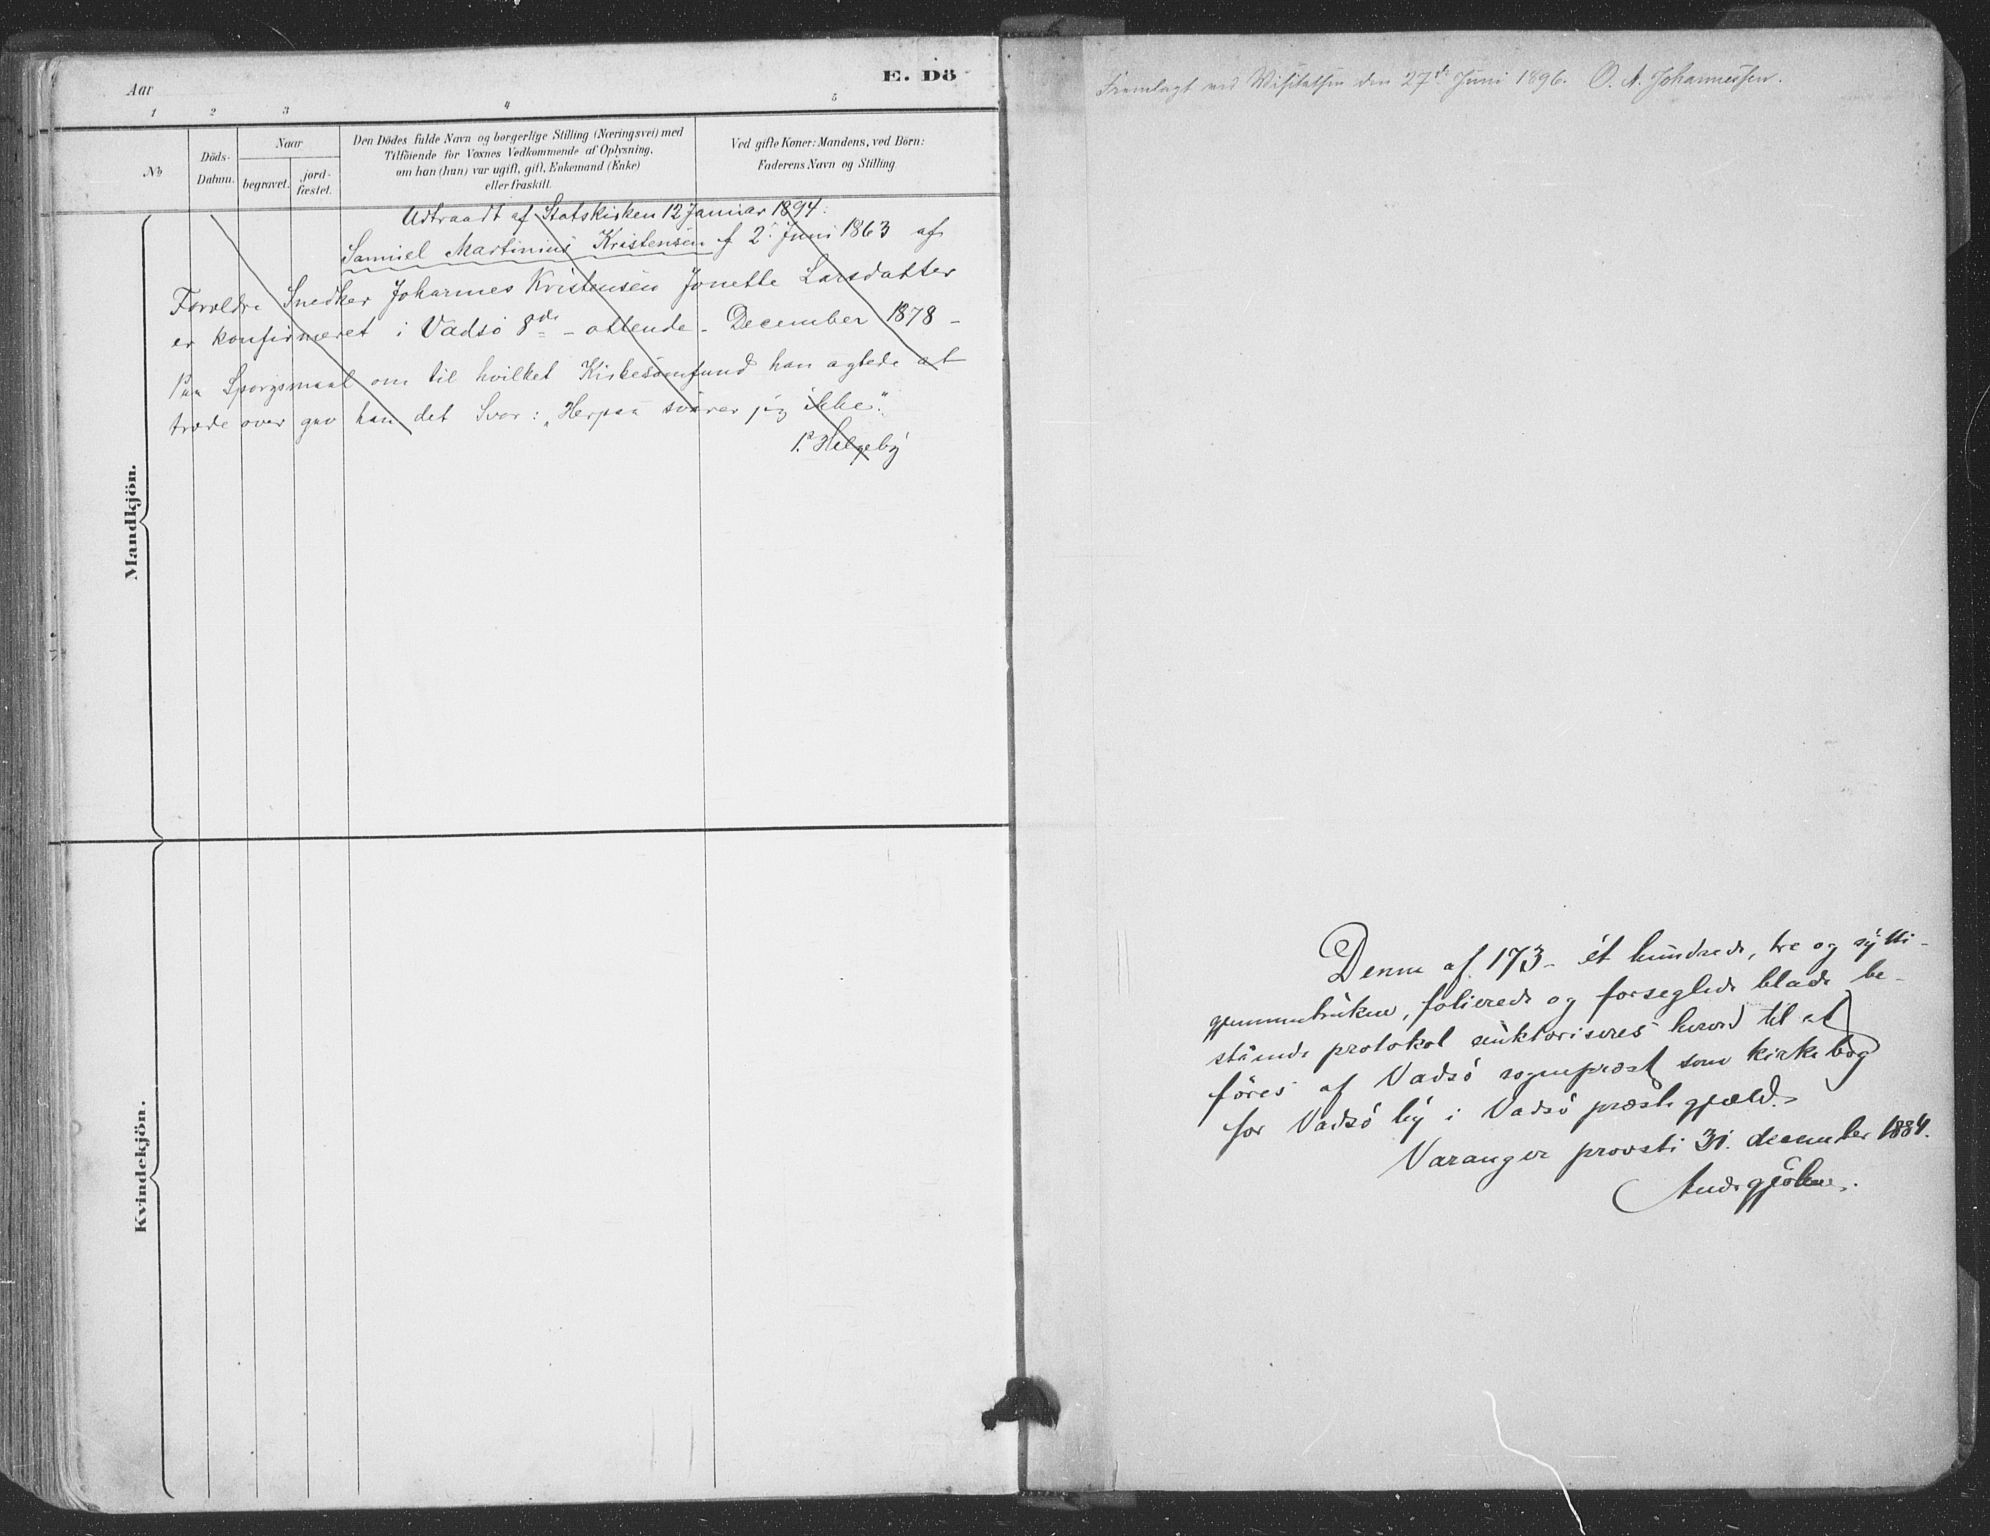 E. Dö
Aar
1 2 3 4 5
No
Döds-
Datum.
Naar
begravet.
jord-
fæstet.
Den Dödes fulde Navn og borgerlige Stilling (Næringsvei) med
Tilföiende for Voxnes Vedkommende af Oplysning,
om han (hun) var ugift, gift, Enkemand (Enke)
eller fraskilt.
Ved gifte Koner: Mandens, ved Börn:
Faderens Navn og Stilling
Mandkjön.
Udtraadt af Statskirken 12 Januar 1894.
Samuel Martinius Kristensen f. 2. Juni 1863 af
Forældre Snedker Johannes Kristensen Jonette Larsdatter
er konfirmeret i Vadsö 8de - ottende - December 1878 -
Paa Spørgsmaal om til hvilket Kirkesamfund han agtede at
træde over gav han det Svar: „Herpaa svarer jeg ikke".
P. Helgeby
Kvindekjön.
Fremlagt ved Visitatsen den 27d Juni 1896. O. A. Johannessen.
Denne af 173 - ét hundrede, tre og sytti -
gjennemtrukne, folierede og forseglede blade be-
stående protokol auktoriseres herved til at
føres af Vadsö sogneprest som kirkebog
for Vadsö by i Vadsö præstegjæld.
Varanger provsti 31. december 1884.